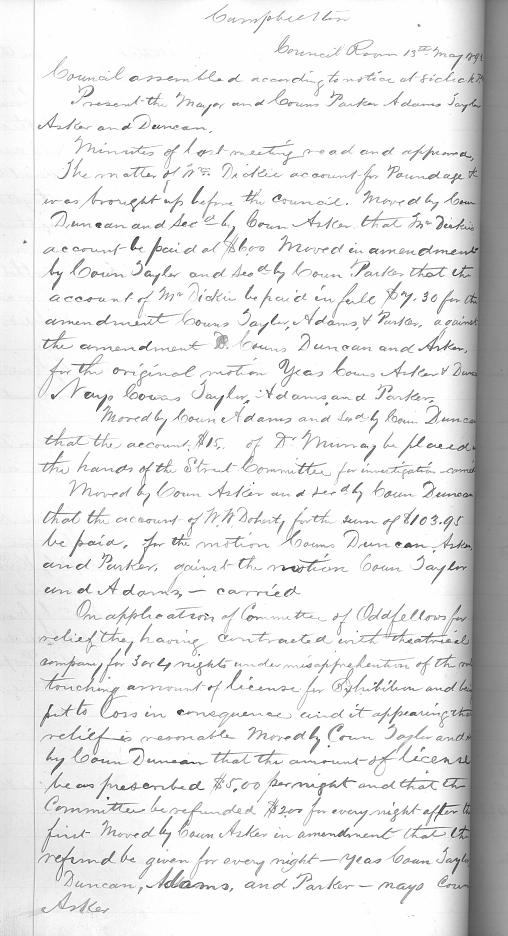 Campbellton
Council Room 13th May 189
Council assembled according to notice at
Present the Mayor and Couns Parker Adams Taylor
Asker and Duncan.
Minutes of last meeting read and approved,
The matter of Wm Dickie account for Poundage
was brought up before the council. Moved by Coun
Duncan and Secd by Coun Asker, that Mr Dickie
account be paid at $6.00 Moved in amendment
by Coun Taylor and Secd by Coun Parker that the
account of Mr Dickie be paid in full $7.30 for the
amendment Couns Taylor, Adams, & Parker, against
the amendment Couns Duncan and Asker,
for the original motion Yeas Couns Asker & Dunca
Nays Couns Taylor, Adams, and Parker,
Moved by Coun Adams and Secd by Coun Duncan
that the account, $15. of Dr Murray be placed in
the hands of the Street Committee for investigation – carried
Moved by Coun Asker and Secd by Coun Duncan
that the account of W W Doherty for the sum of $103.95
be paid, for the motion Couns Duncan, Asker
and Parker, against the motion Coun Taylor
and Adams, – carried
On application of Committee of Oddfellows for
relief they having contracted with theatrical
company for 3 or 4 nights under misapprehention of the
touching amount of license for Exhibition and
put to loss in consequence and it appearing that
relief is resonable Moved by Coun Taylor and
by Coun Duncan that the amount of license
be as prescribed $5.00 per night and that the
Committee be refunded $2.00 for every night after the
first Moved by Coun Asker in amendment that the
refund be given for every night – yeas Coun Taylor
Duncan, Adams, and Parker – nays Coun
Asker